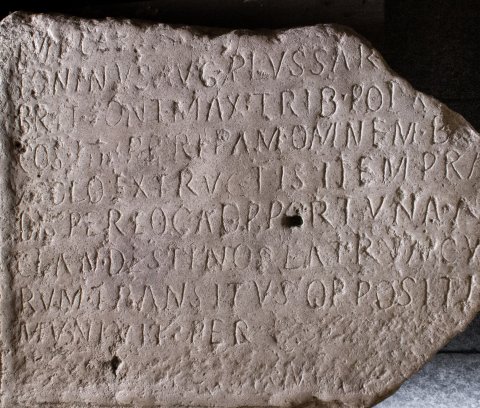 TONINVS AVG PIVS SAR
BRIT·PONT·MAX·TRIB·POT·X
COS IIII P P RIPAM·OMNEM·B
SOLO EXTRVCTIS ITEM PRA
IIS PER LOCA OPPORTVNA A
CLANDESTINOS LATRVNCV
RVM TRANSITVS OPPOSITI
MVNIVIT PER